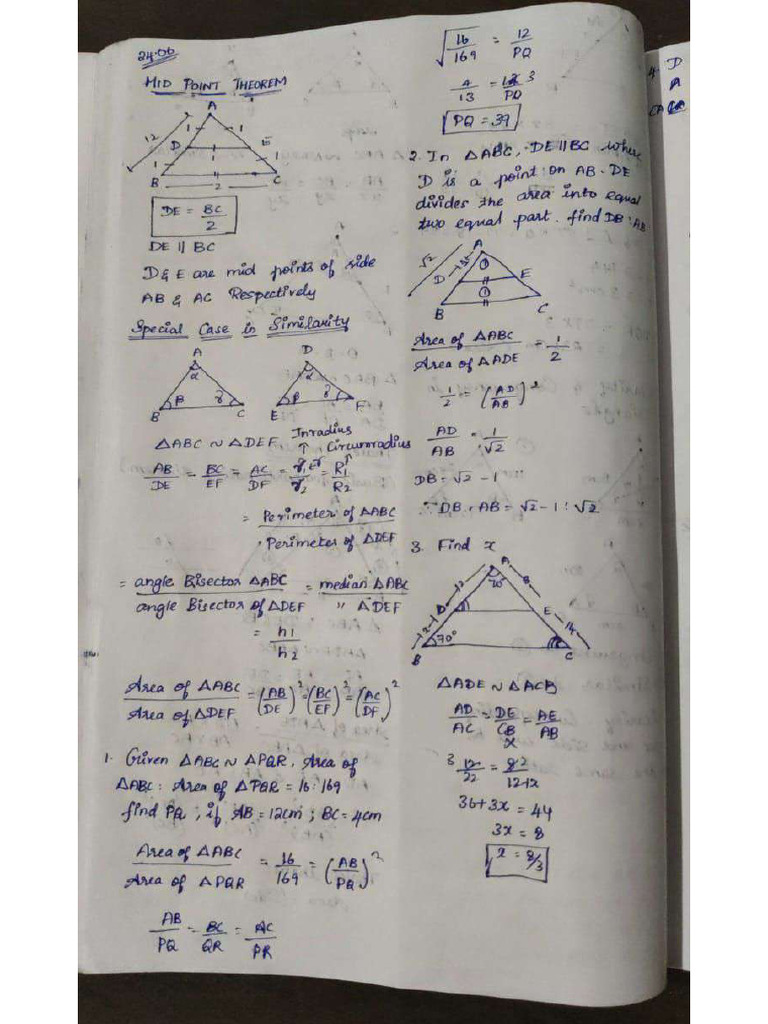 24.06
MID POINT THEOREM
A
12
1
1
D
E
1
1
B
2
C
DE = BC/2
DE || BC
D & E are mid points of side
AB & AC Respectively
Special Case in Similarity
A
D
α
α
β
γ
β
γ
B
C
E
F
△ABC ~ △DEF
Inradius
Circumradius
AB/DE = BC/EF = AC/DF = r₁/r₂ = R₁/R₂
= Perimeter of △ABC / Perimeter of △DEF
= angle Bisector △ABC / angle Bisector of △DEF = median △ABC / " △DEF
= h1/h2
Area of △ABC / Area of △DEF = (AB/DE)² = (BC/EF)² = (AC/DF)²
1. Given △ABC ~ △PQR, Area of
△ABC : Area of △PQR = 16 : 169
find PQ, if AB = 12cm ; BC = 4cm
Area of △ABC / Area of △PQR = 16/169 = (AB/PQ)²
AB/PQ = BC/QR = AC/PR
√16/169 = 12/PQ
4/13 = 12 3/PQ
PQ = 39
2. In △ABC, DE || BC where
D is a point on AB. DE
divides the area into equal
two equal part. find DB : AB
A
√2
1
D
E
1
B
C
Area of △ABC / Area of △ADE = 1/2
1/2 = (AD/AB)²
AD/AB = 1/√2
DB = √2 - 1
∵ DB : AB = √2 - 1 : √2
3. Find x
A
12
8
70°
D
E
B
70°
C
△ADE ~ △ACB
AD/AC = DE/CB = AE/AB
x
3 12/22 = 8 2/12+x
36+3x = 44
3x = 8
x = 8/3
4. D
A